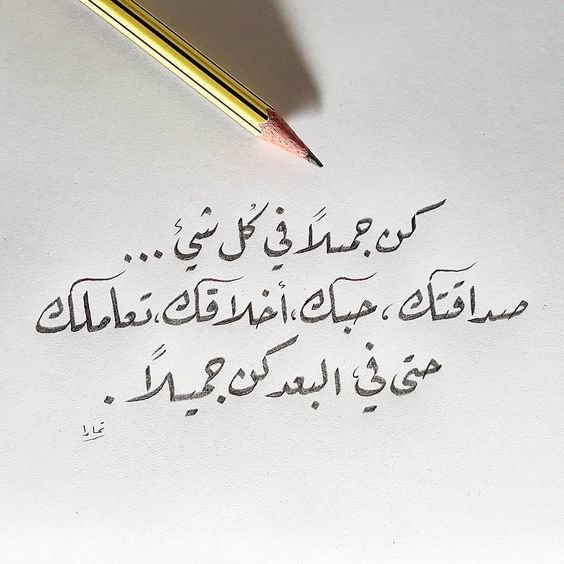 كن جميلاً في كُل شيء ...
صداقتك ، حبك ، أخلاقك ، تعاملك
حتى في البعد كن جميلاً .
تمارا